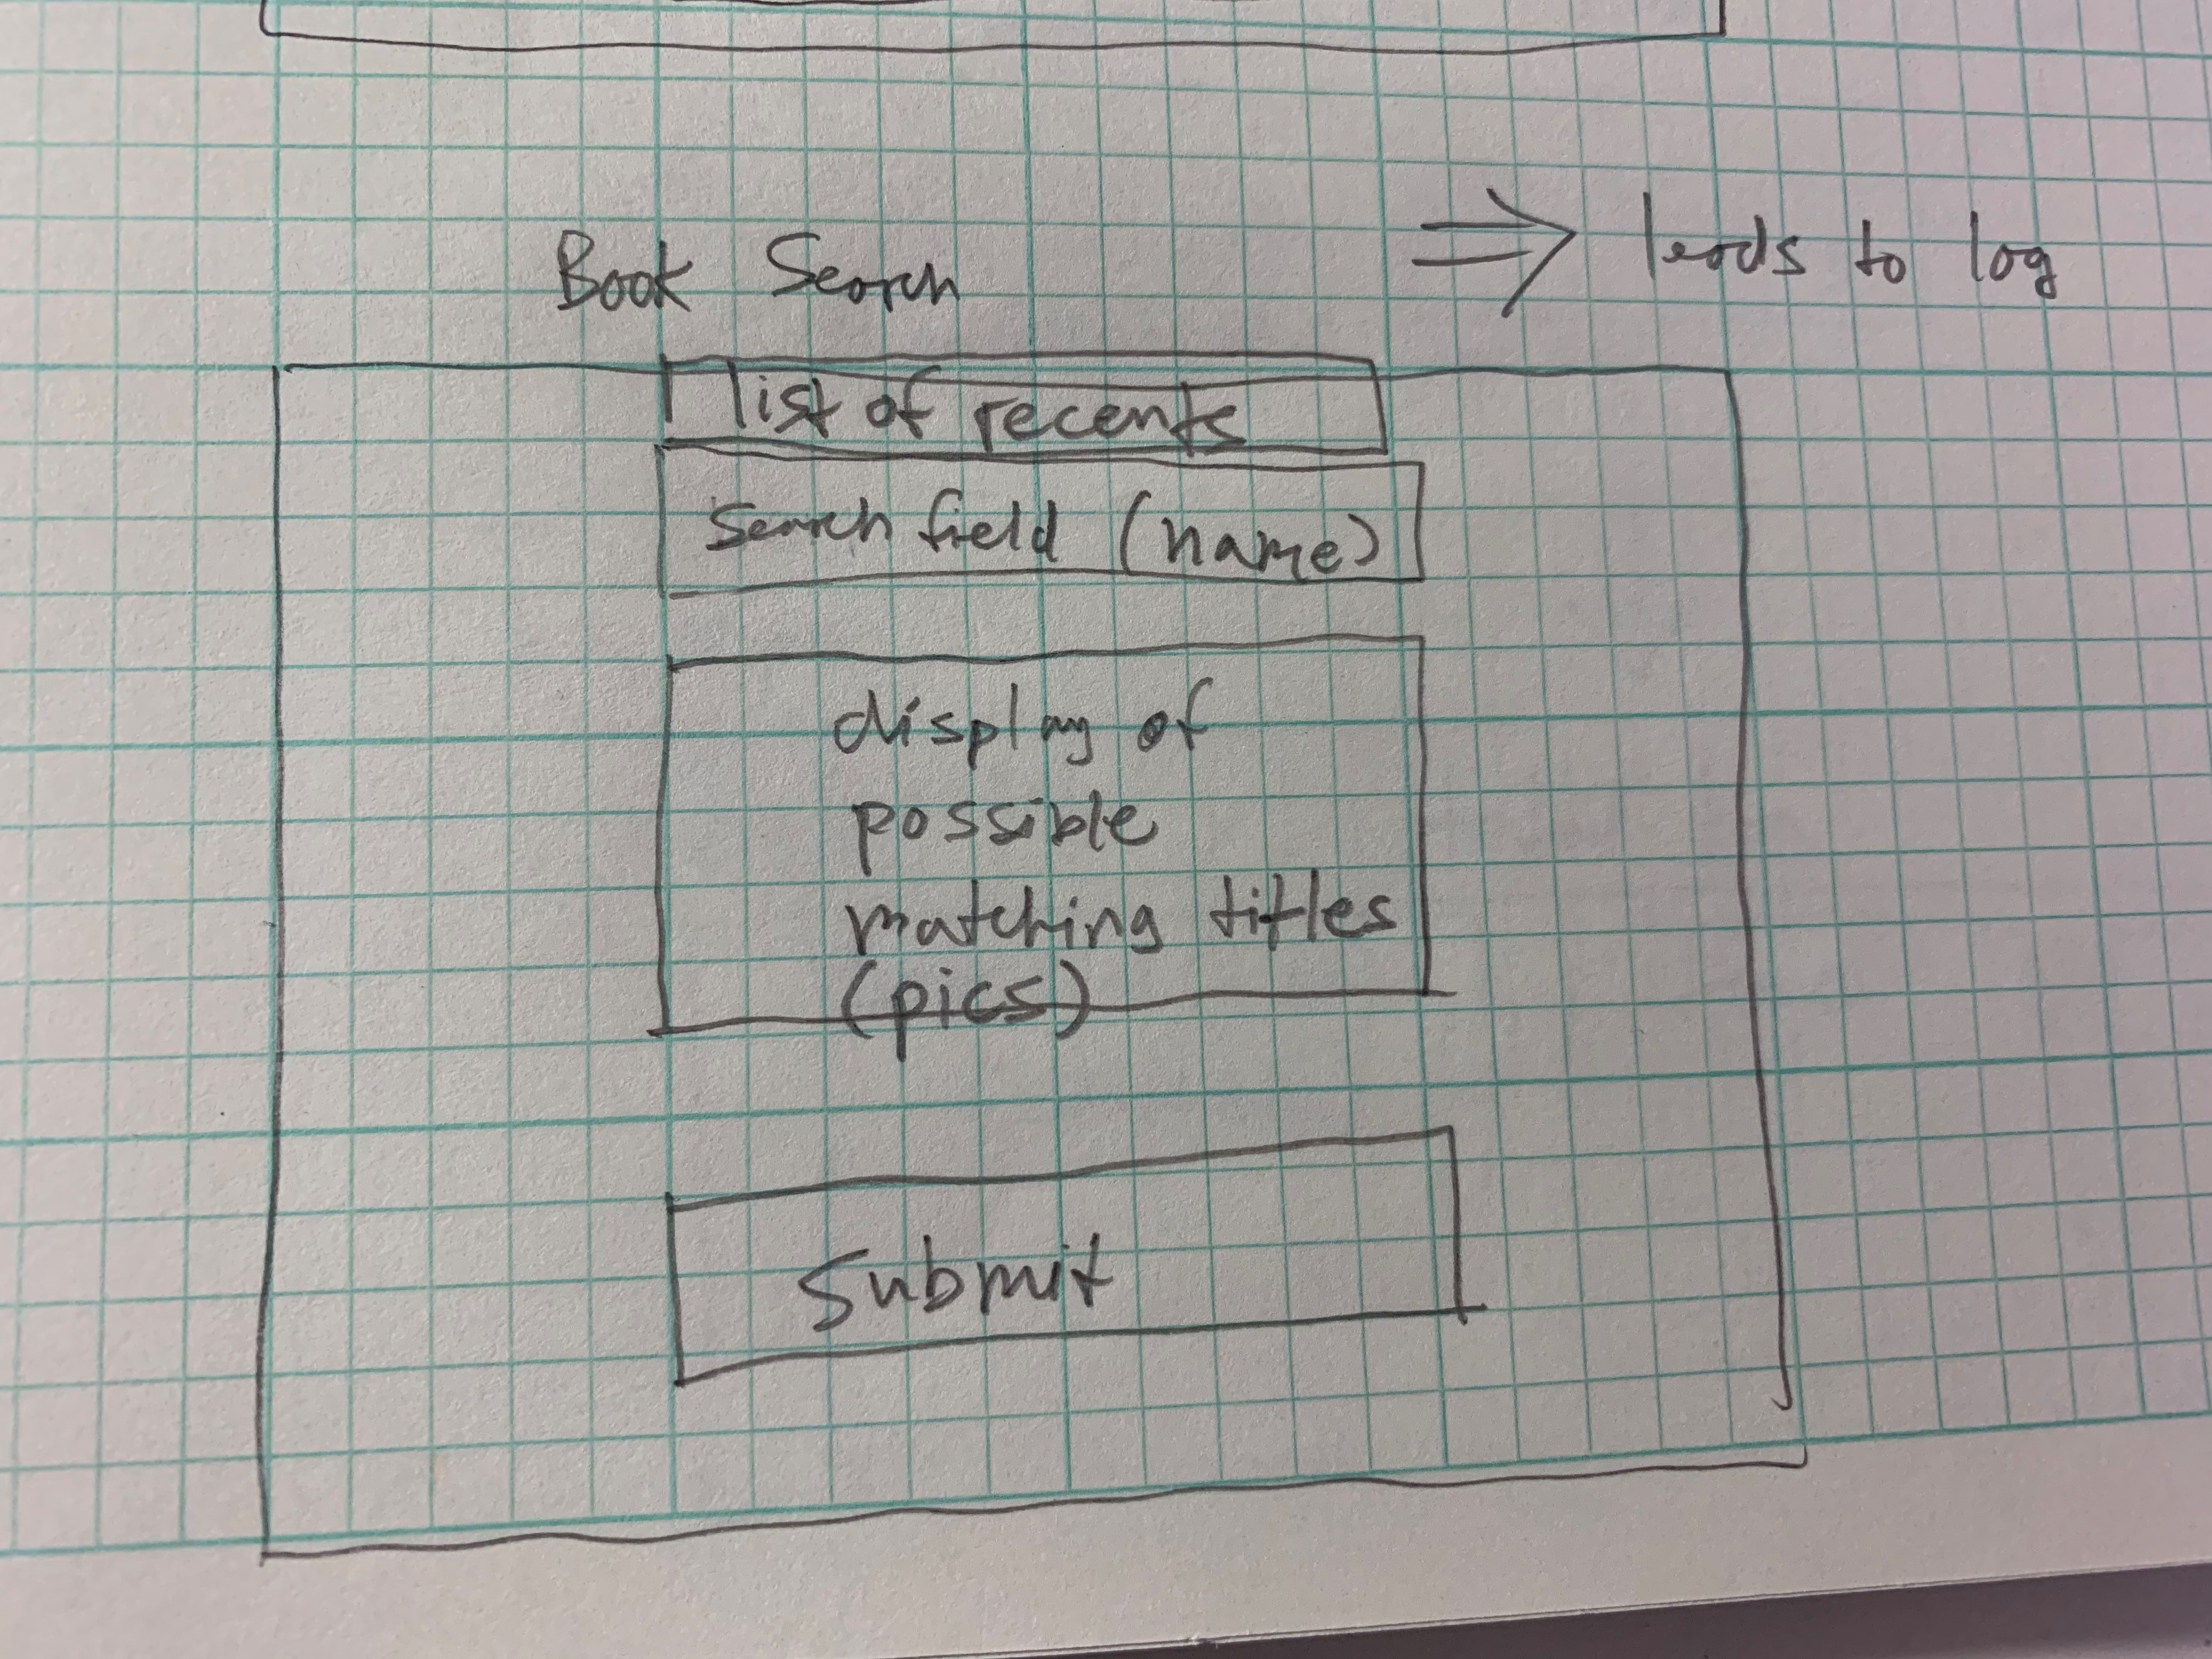 Book Search
⇒ leads to log
list of recents
Search field (name)
display of
possible
matching titles
(pics)
Submit